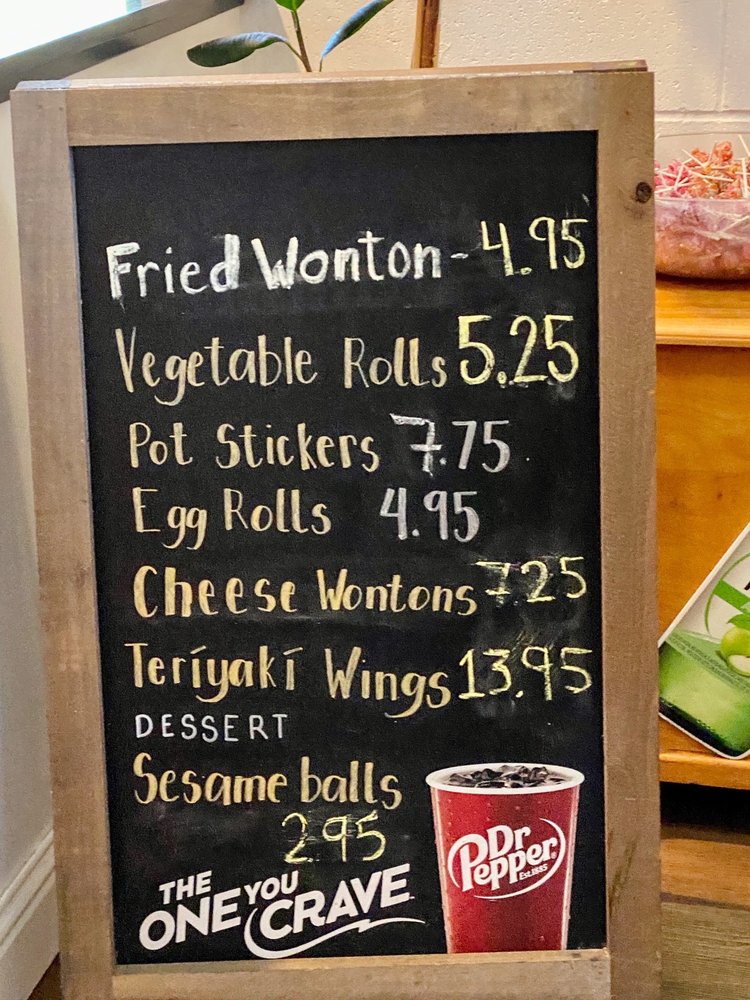 Fried Wonton - 4.95
Vegetable Rolls 5.25
Pot Stickers 7.75
Egg Rolls 4.95
Cheese Wontons 7.25
Teríyakí Wings 13.95
DESSERT
Sesame balls
2.95
THE
ONE YOU
CRAVE
Dr
Pepper
Est.1885